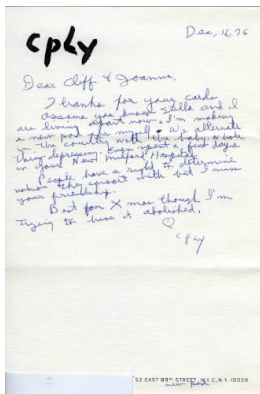 cply
Dec, 16, 76
Dear Cliff & Joanne,
Thanks for your card.
Assume you know Stella and I
are living apart now. I'm making
a new pad for myself. We alternate
in the country with the baby, a whole
thing depressing. Even spent a few days
in your New Milford Hospital.
People have a right to determine
whom they consort with but I miss
your friendship.
Best for Xmas though I'm
trying to have it abolished.
♡
cply
52 EAST 89TH STREET, N.Y.C., N.Y. 10028
new pad